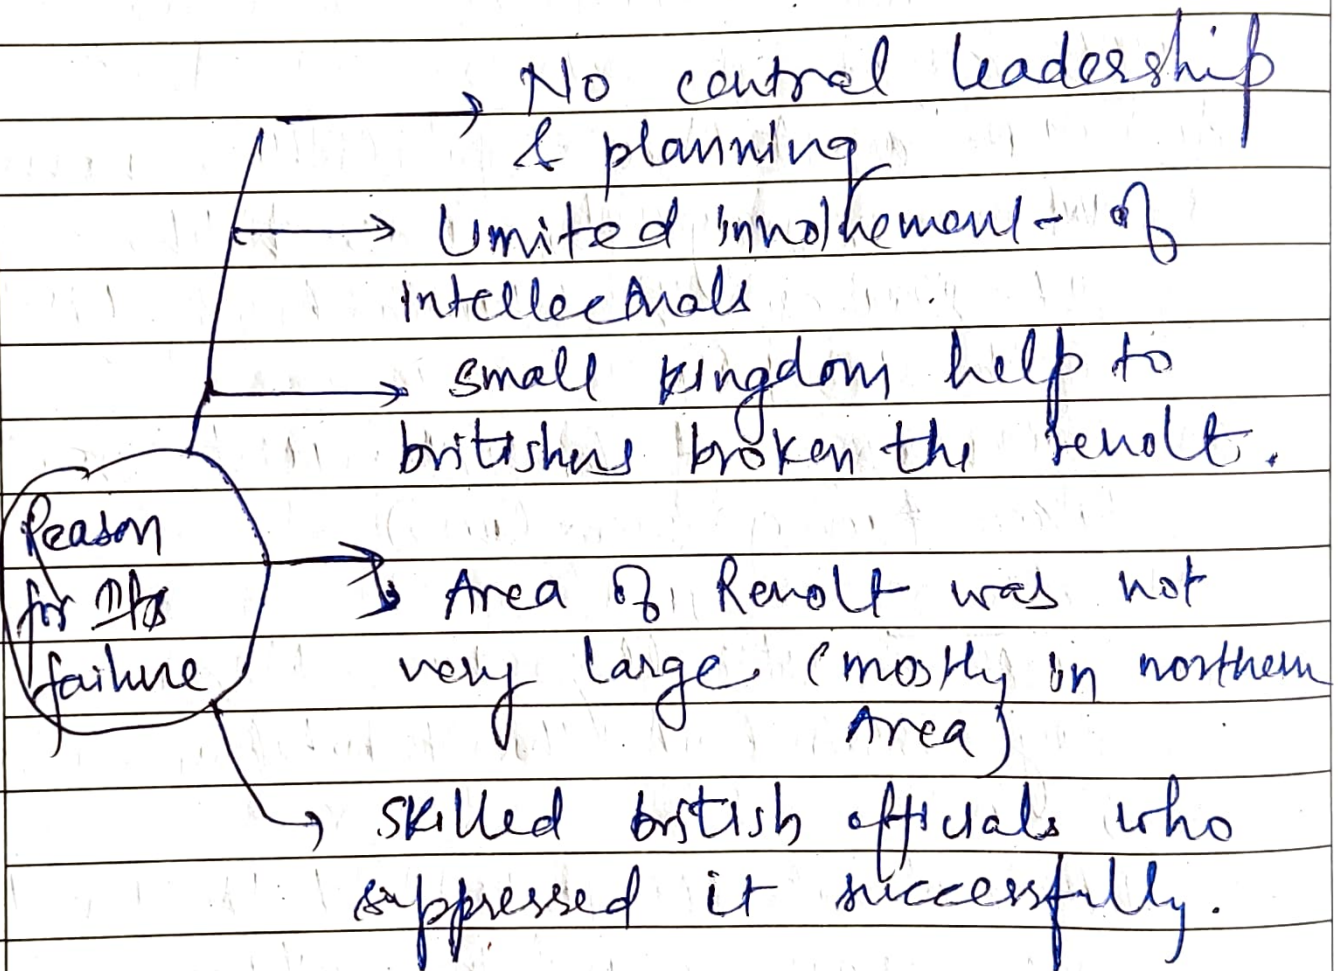 No central leadership
& planning
Limited involvement of
intellectuals
small kingdom help to
britishers broken the revolt.
Reason
for its
failure
Area of Revolt was not
very large (mostly in northern
Area)
skilled british officials who
suppressed it successfully.